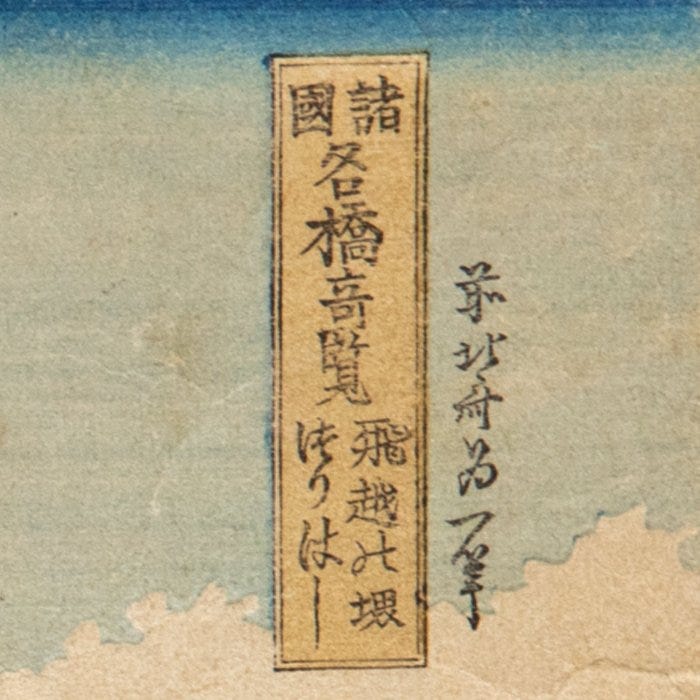 前北斎為一筆
諸國名橋竒覧
飛越の堺
つりはし